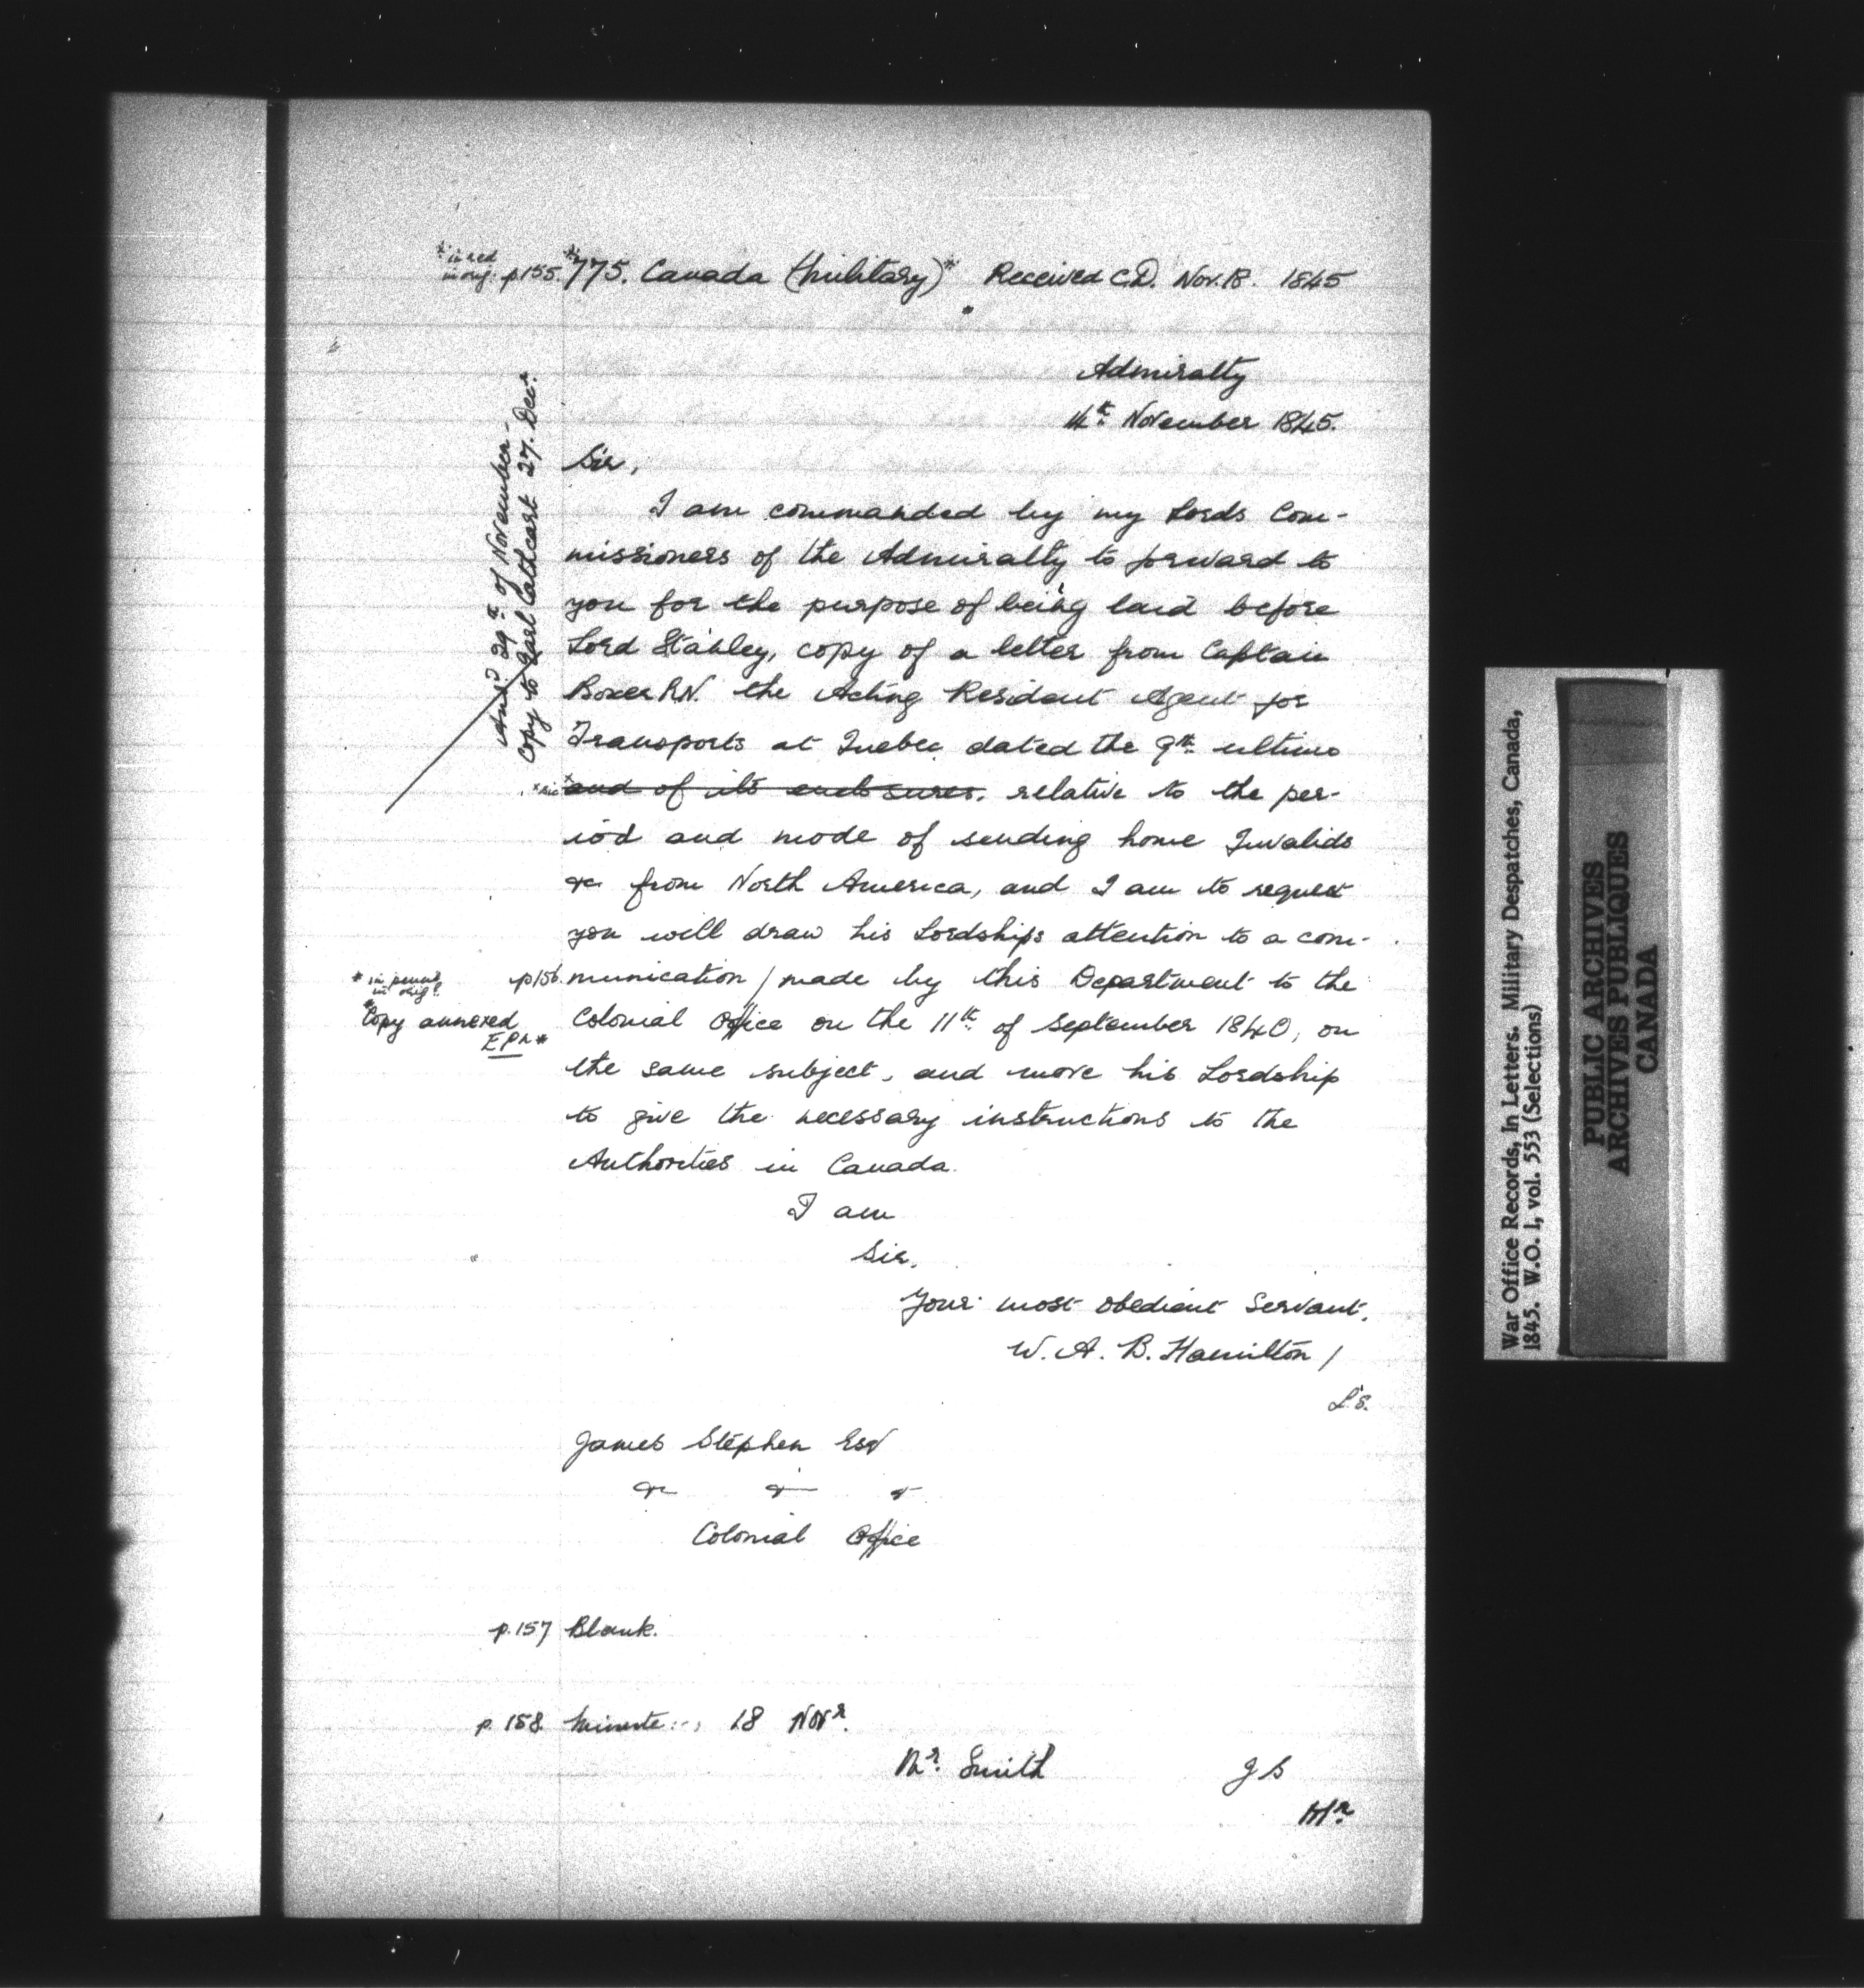 * in red
in orig. p.155. *775. Canada (Military)* Received C.D. Nov. 18. 1845
Admiralty
14th November 1845.
Ansd 29th of November -
Copy to Earl Cathcart 27. Decr.
Sir,
I am commanded by my Lords Com-
missioners of the Admiralty to forward to
you for the purpose of being laid before
Lord Stanley, copy of a letter from Captain
Boxer R.N. the Acting Resident Agent for
Transports at Quebec dated the 9th ultimo
*sic *and of its enclosures, relative to the per-
iod and mode of sending home Invalids
&c from North America, and I am to request
you will draw his Lordships attention to a com-
p156. munication / made by this Department to the
* in pencil
in orig.
*Copy annexed
EPL *
Colonial Office on the 11th of September 1840, on
the same subject, and move his Lordship
to give the necessary instructions to the
Authorities in Canada.
I am
Sir,
Your most obedient Servant,
W. A. B. Hamilton /
L.S.
James Stephen Esq
&c & &
Colonial Office
p.157 Blank.
p. 158. Minute: 18 Novr.
Mr. Smith J S
Mr.
War Office Records, In Letters. Military Despatches, Canada,
1845. W.O. 1, vol. 553 (Selections)
PUBLIC ARCHIVES
ARCHIVES PUBLIQUES
CANADA